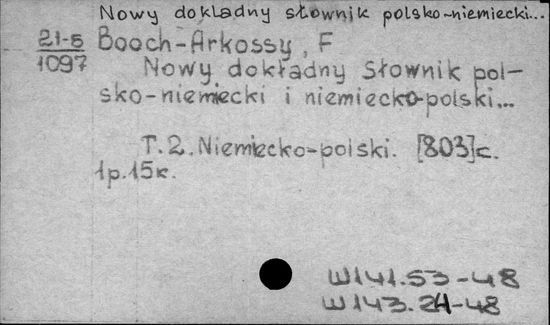 Nowy dokladny słownik polsko-niemiecki...
21-5
1097
Booch-Arkossy, F
Nowy dokładny Słownik pol-
sko-niemiecki i niemiecko-polski...
T.2. Niemiecko-polski. [803]c.
1p.15к.
W141.53-48
W143.24-48